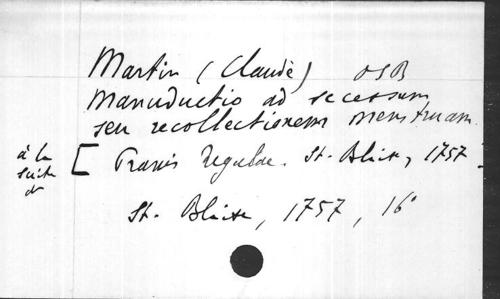 Martin (Claude) OSB
Manuductio ad secessum
seu recollectionem menstruam
à la suite de [ Praxis Regulae. St. Blaise, 1757.
St. Blaise, 1757, 16°